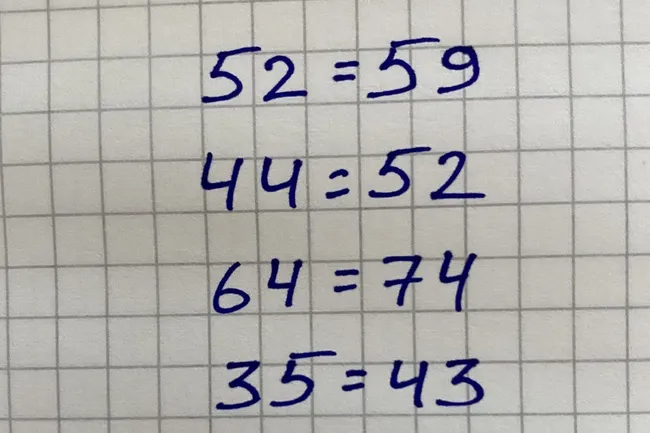 52=59
44=52
64=74
35=43